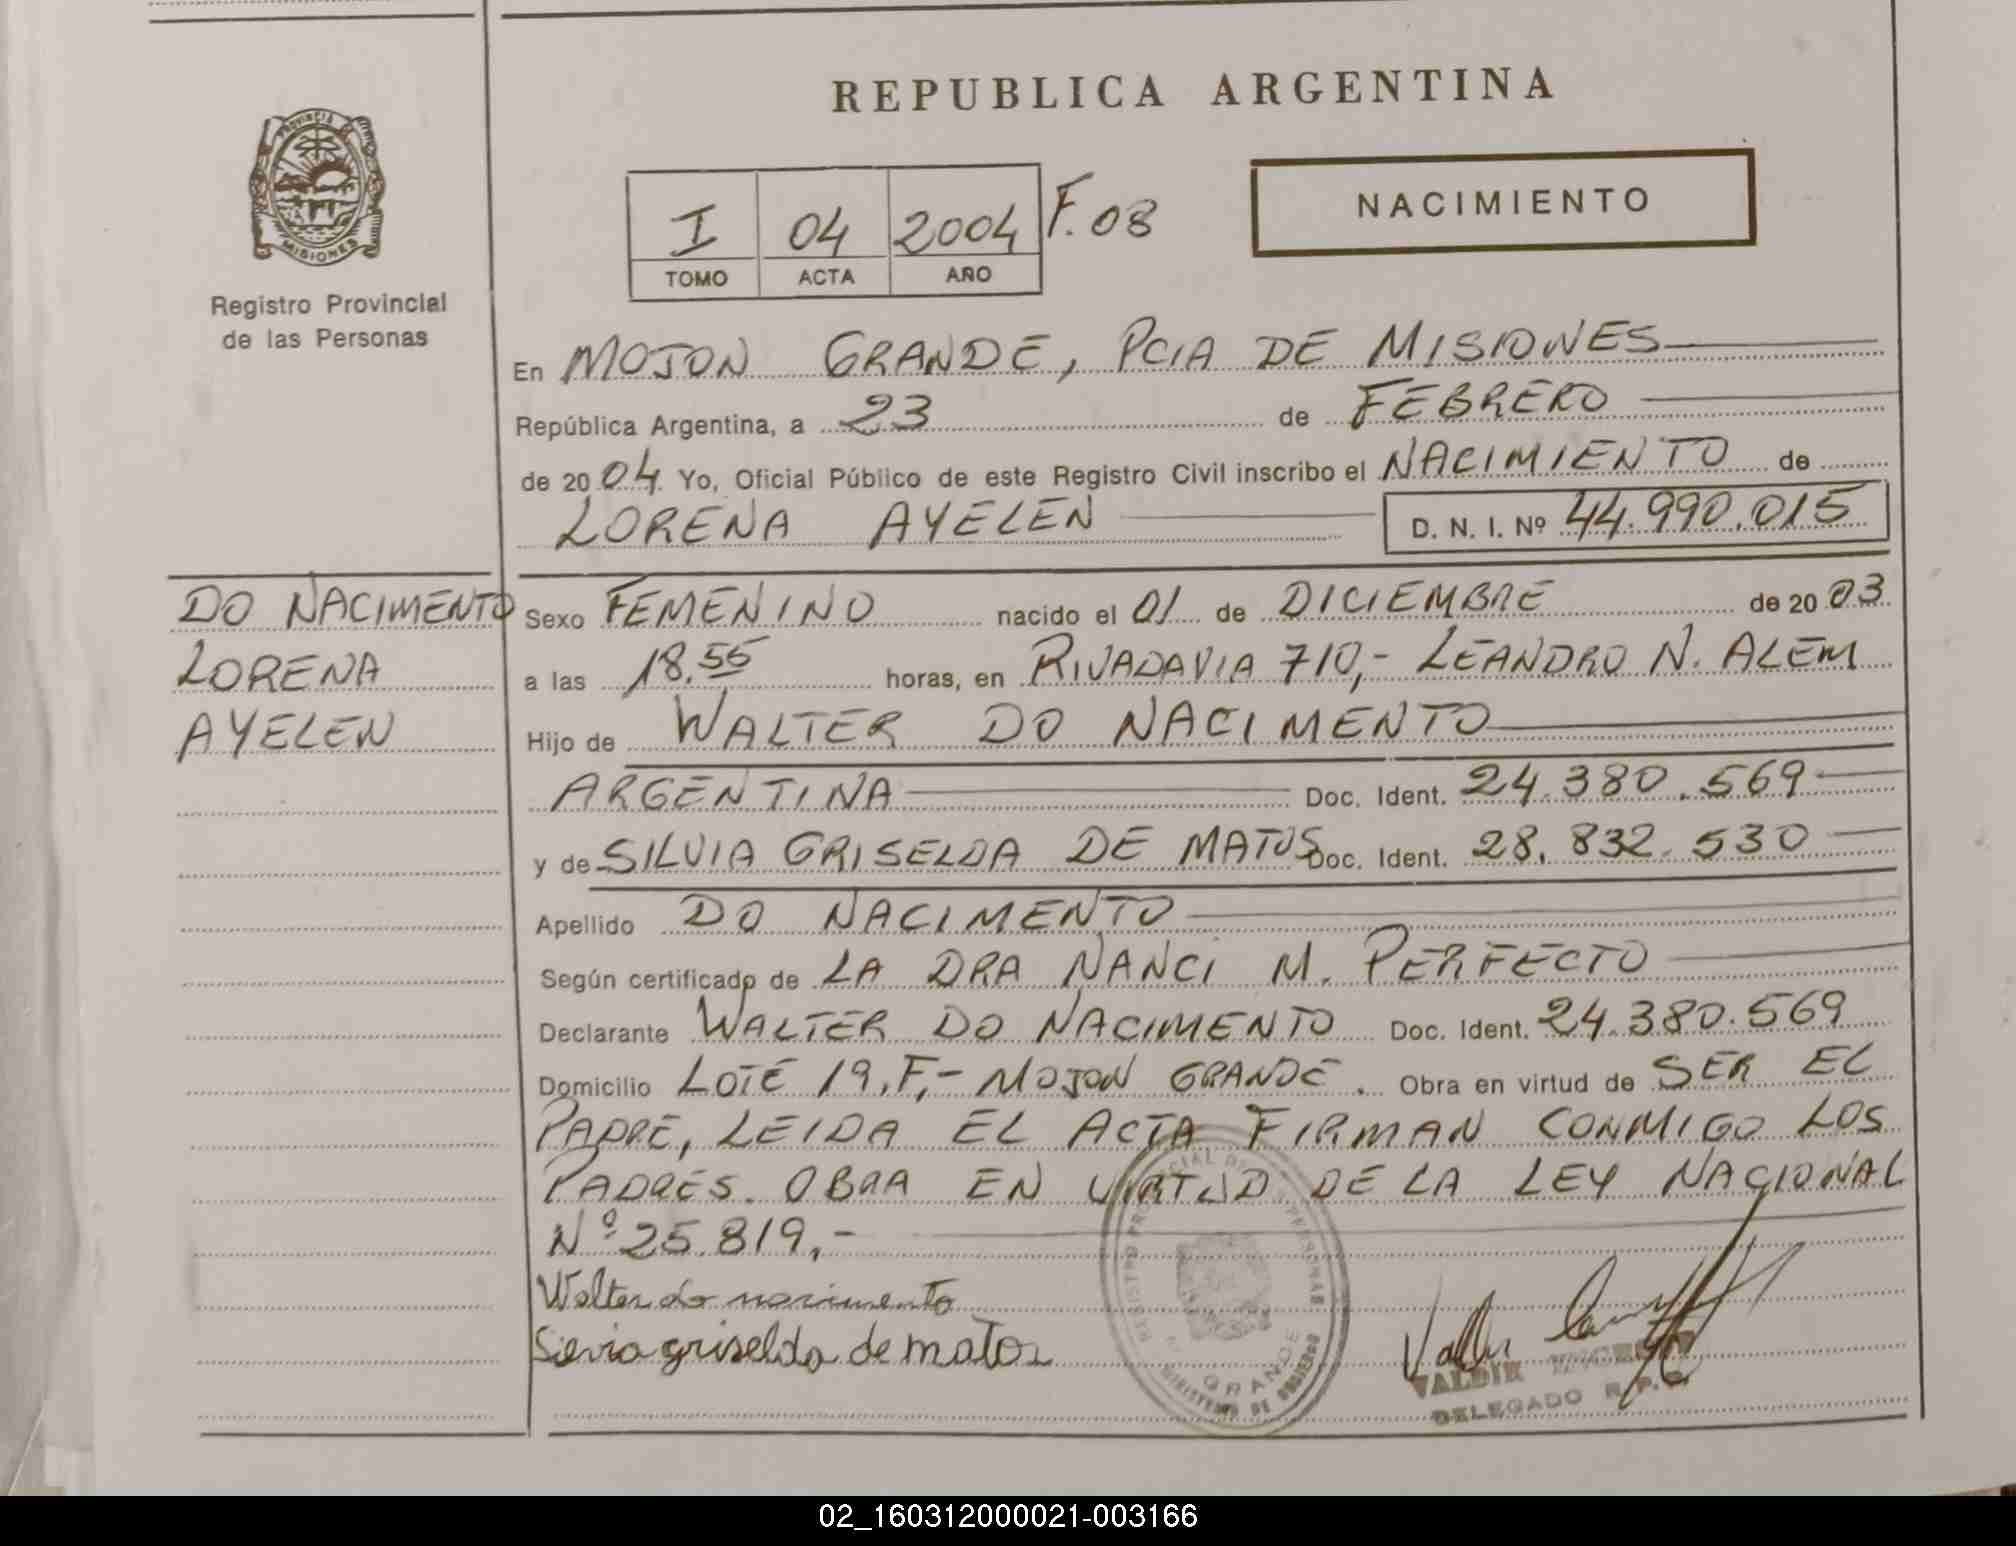 REPUBLICA ARGENTINA
PROVINCIA DE
MISIONES
Registro Provincial
de las Personas
NACIMIENTO
I 04 2004 F.08
TOMO ACTA AÑO
En MOJON GRANDE, PCIA DE MISIONES
República Argentina, a 23 de FEBRERO
de 2004 Yo, Oficial Público de este Registro Civil inscribo el NACIMIENTO de
LORENA AYELEN D. N. I. Nº 44.990.015
DO NACIMENTO
LORENA
AYELEN
Sexo FEMENINO nacido el 01 de DICIEMBRE de 2003
a las 18.55 horas, en RIVADAVIA 710,- LEANDRO N. ALEM
Hijo de WALTER DO NACIMENTO
ARGENTINA Doc. Ident. 24.380.569
y de SILVIA GRISELDA DE MATOS Doc. Ident. 28.832.530
Apellido DO NACIMENTO
Según certificado de LA DRA NANCI M. PERFECTO
Declarante WALTER DO NACIMENTO Doc. Ident. 24.380.569
Domicilio LOTE 19,F,- MOJON GRANDE. Obra en virtud de SER EL
PADRE, LEIDA EL ACTA FIRMAN CONMIGO LOS
PADRES. OBRA EN VIRTUD DE LA LEY NACIONAL
Nº 25.819,-
Walter do nacimento
Silvia griselda de matos
REGISTRO PROVINCIAL DE PERSONAS
GRANDE
MINISTERIO DE GOBIERNO
VALDIR
DELEGADO R.P.P.
02_160312000021-003166